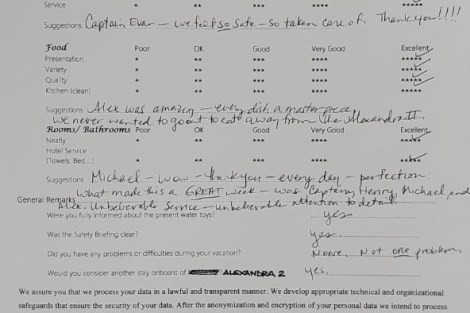 Service * ** *** **** *****
Suggestions Captain Evan - we felt so safe - so taken care of. Thank you!!!!
Food Poor OK Good Very Good Excellent
Presentation * ** *** **** *****
Variety * ** *** **** *****
Quality * ** *** **** *****
Kitchen (clean) * ** *** **** *****
Suggestions Alex was amazing - every dish a masterpiece
We never wanted to go out to eat away from the Alexandra II.
Rooms/ Bathrooms Poor OK Good Very Good Excellent
Neatly * ** *** **** *****
Hotel Service
(Towels, Bed...) * ** *** **** *****
Suggestions Michael - wow - thank you - every day - perfection.
What made this a GREAT week - was Captain, Henry, Michael, and
General Remarks Alex. Unbelievable service - unbelievable attention to detail.
Were you fully informed about the present water toys? yes
Was the Safety Briefing clear? yes.
Did you have any problems or difficulties during your vacation? None. Not one problem.
Would you consider another stay onboard of ALEXANDRA 2 yes.
We assure you that we process your data in a lawful and transparent manner. We develop appropriate technical and organizational
safeguards that ensure the security of your data. After the anonymization and encryption of your personal data we intend to process